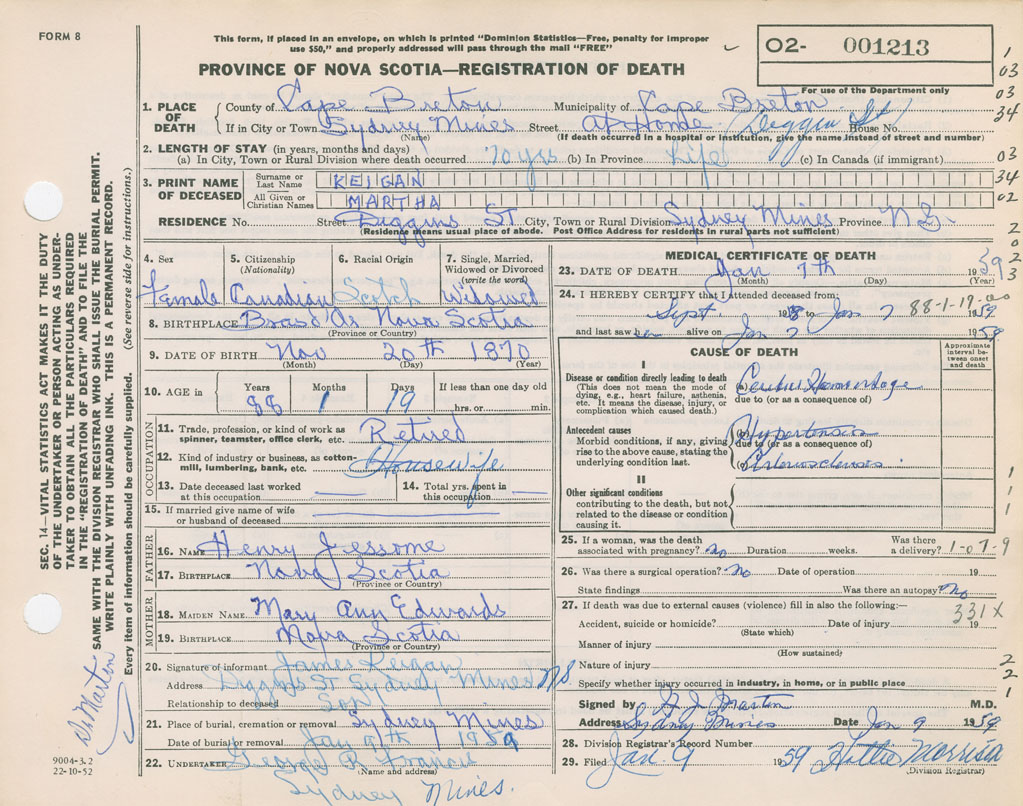 FORM 8
This form, if placed in an envelope, on which is printed "Dominion Statistics—Free, penalty for improper
use $50," and properly addressed will pass through the mail "FREE"
PROVINCE OF NOVA SCOTIA—REGISTRATION OF DEATH
02- 001213
For use of the Department only
1
03
03
34
03
34
02
2
0
2
3
1. PLACE OF DEATH
County of Cape Breton Municipality of Cape Breton
If in City or Town Sydney Mines Street At Home Deggin St House No.
(Name) (If death occurred in a hospital or institution, give the name instead of street and number)
2. LENGTH OF STAY (in years, months and days)
(a) In City, Town or Rural Division where death occurred 70 yrs (b) In Province Life (c) In Canada (if immigrant)
3. PRINT NAME OF DECEASED
Surname or Last Name KEIGAN
All Given or Christian Names MARTHA
RESIDENCE No. Street Diggins St City, Town or Rural Division Sydney Mines Province N.S.
(Residence means usual place of abode. Post Office Address for residents in rural parts not sufficient)
4. Sex Female
5. Citizenship (Nationality) Canadian
6. Racial Origin Scotch
7. Single, Married, Widowed or Divorced (write the word) Widowed
8. BIRTHPLACE Bras d'Or Nova Scotia
(Province or Country)
9. DATE OF BIRTH Nov 20th 1870
(Month) (Day) (Year)
10. AGE in Years 88 Months 1 Days 19 If less than one day old hrs. or min.
OCCUPATION
11. Trade, profession, or kind of work as spinner, teamster, office clerk, etc. Retired
12. Kind of industry or business, as cotton-mill, lumbering, bank, etc. Housewife
13. Date deceased last worked at this occupation
14. Total yrs. spent in this occupation
15. If married give name of wife or husband of deceased
FATHER
16. NAME Henry Jessome
17. BIRTHPLACE Nova Scotia
(Province or Country)
MOTHER
18. MAIDEN NAME Mary Ann Edwards
19. BIRTHPLACE Nova Scotia
(Province or Country)
20. Signature of informant James Keigan
Address Diggins St Sydney Mines NS
Relationship to deceased Son
21. Place of burial, cremation or removal Sydney Mines
Date of burial or removal Jan 9th 1959
22. UNDERTAKER George R Francis
(Name and address)
Sydney Mines.
MEDICAL CERTIFICATE OF DEATH
23. DATE OF DEATH Jan 7th 1959
(Month) (Day) (Year)
24. I HEREBY CERTIFY that I attended deceased from
Sept 1958 to Jan 7 1959
88-1-19-00
and last saw her alive on Jan 7 1959
CAUSE OF DEATH
Approximate interval between onset and death
I
Disease or condition directly leading to death
(This does not mean the mode of dying, e.g., heart failure, asthenia, etc. It means the disease, injury, or complication which caused death.)
(a) Cerebral Hemorrhage
due to (or as a consequence of)
Antecedent causes
Morbid conditions, if any, giving rise to the above cause, stating the underlying condition last.
(b) Hypertension
due to (or as a consequence of)
(c) Arteriosclerosis
II
Other significant conditions
contributing to the death, but not related to the disease or condition causing it.
1
1
1
25. If a woman, was the death associated with pregnancy? No Duration weeks. Was there a delivery?
1-07-9
26. Was there a surgical operation? No Date of operation 19
State findings Was there an autopsy? No
27. If death was due to external causes (violence) fill in also the following:—
331X
Accident, suicide or homicide? Date of injury 19
(State which)
Manner of injury
(How sustained)
Nature of injury
Specify whether injury occurred in industry, in home, or in public place
2
2
1
Signed by Martin M.D.
Address Sydney Mines Date Jan 9 1959
28. Division Registrar's Record Number
29. Filed Jan 9 1959 Hattie Morrison
(Division Registrar)
SEC. 14—VITAL STATISTICS ACT MAKES IT THE DUTY
OF THE UNDERTAKER OR PERSON ACTING AS UNDER-
TAKER TO OBTAIN ALL THE PARTICULARS REQUIRED
IN THE "REGISTRATION OF DEATH" AND TO FILE THE
SAME WITH THE DIVISION REGISTRAR WHO SHALL ISSUE THE BURIAL PERMIT.
WRITE PLAINLY WITH UNFADING INK. THIS IS A PERMANENT RECORD.
Every item of information should be carefully supplied. (See reverse side for instructions.)
Dr Martin
9004-3.2
22-10-52